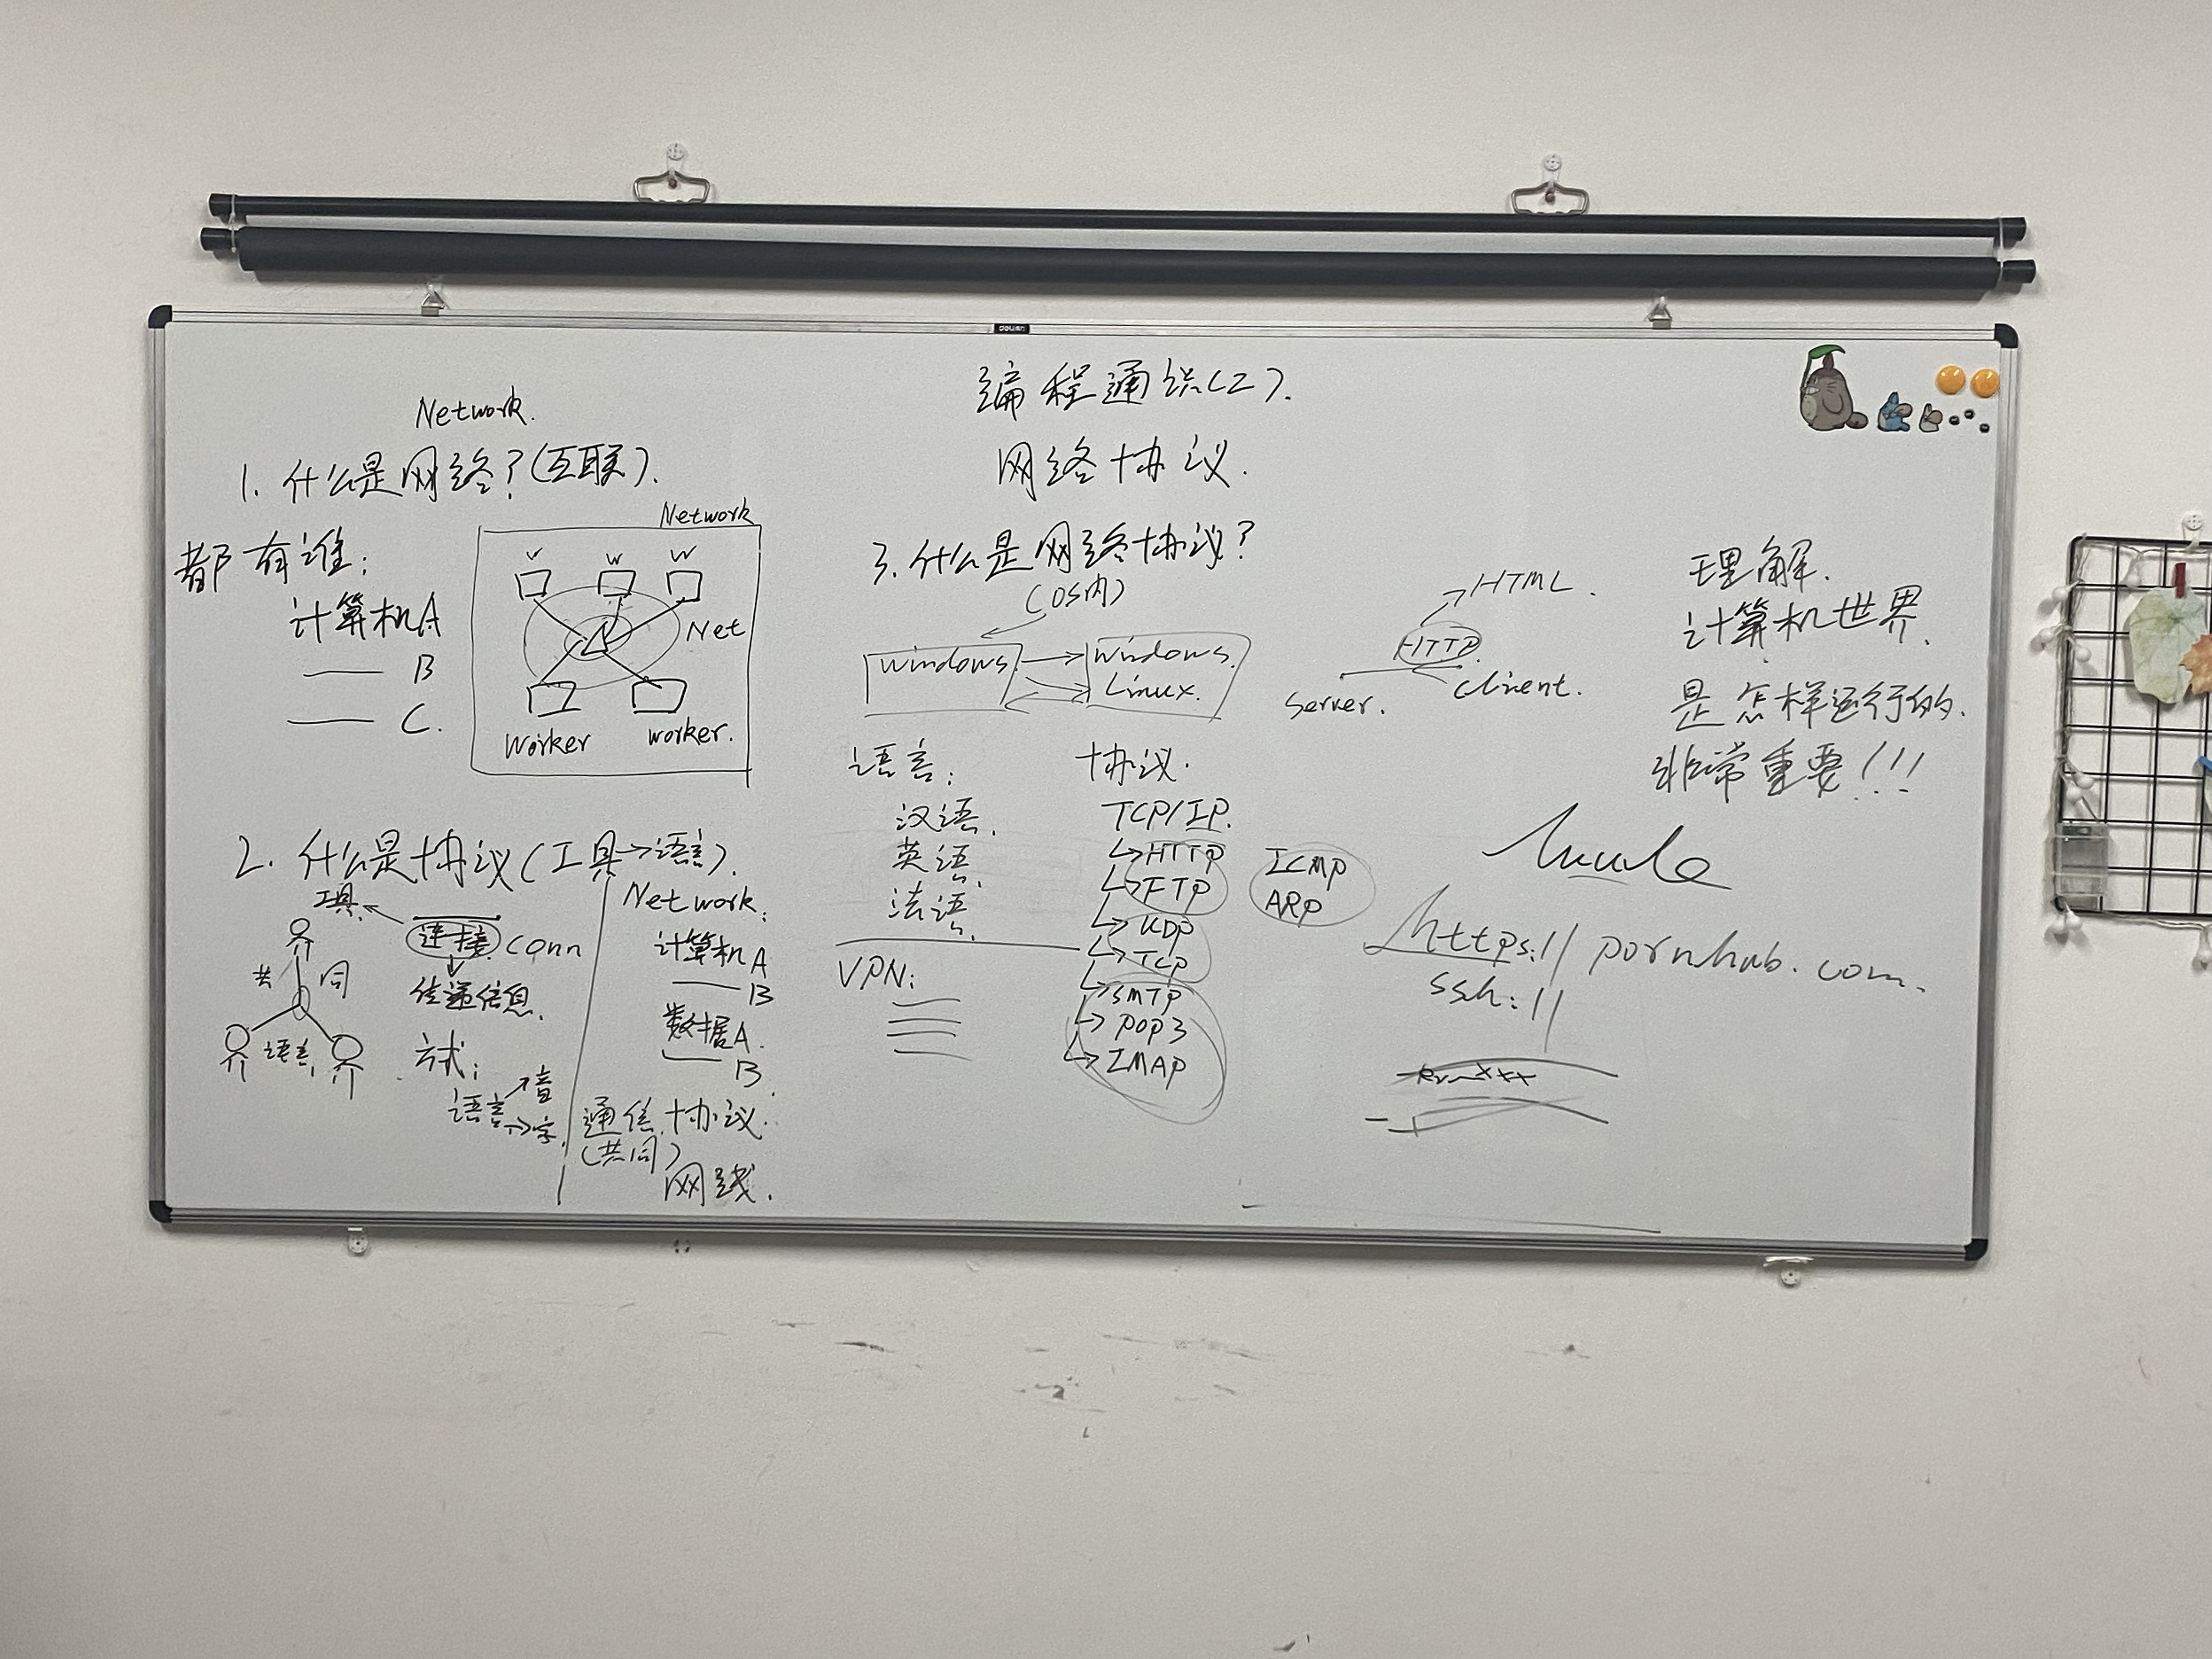 deli
编程通识(2).
网络协议.
Network.
1. 什么是网络?(互联).
都有谁:
计算机A
—— B
—— C.
Network
W W W
Net
Worker worker.
2. 什么是协议(工具→语言).
工具
连接 conn
共同
语言
传递信息.
方式:
语言→音
→字.
Network:
计算机A
—— B
数据A.
—— B.
通信协议.
(共同)
网线.
3.什么是网络协议?
(OS内)
windows. windows.
Linux.
语言:
汉语.
英语.
法语.
VPN:
协议.
TCP/IP.
↳HTTP
↳FTP
↳UDP
↳TCP
↳SMTP
↳POP3
↳IMAP
ICMP
ARP
HTML.
HTTP
Server. Client.
理解.
计算机世界.
是怎样运行的.
非常重要!!!
https:// pornhub.com.
ssh://